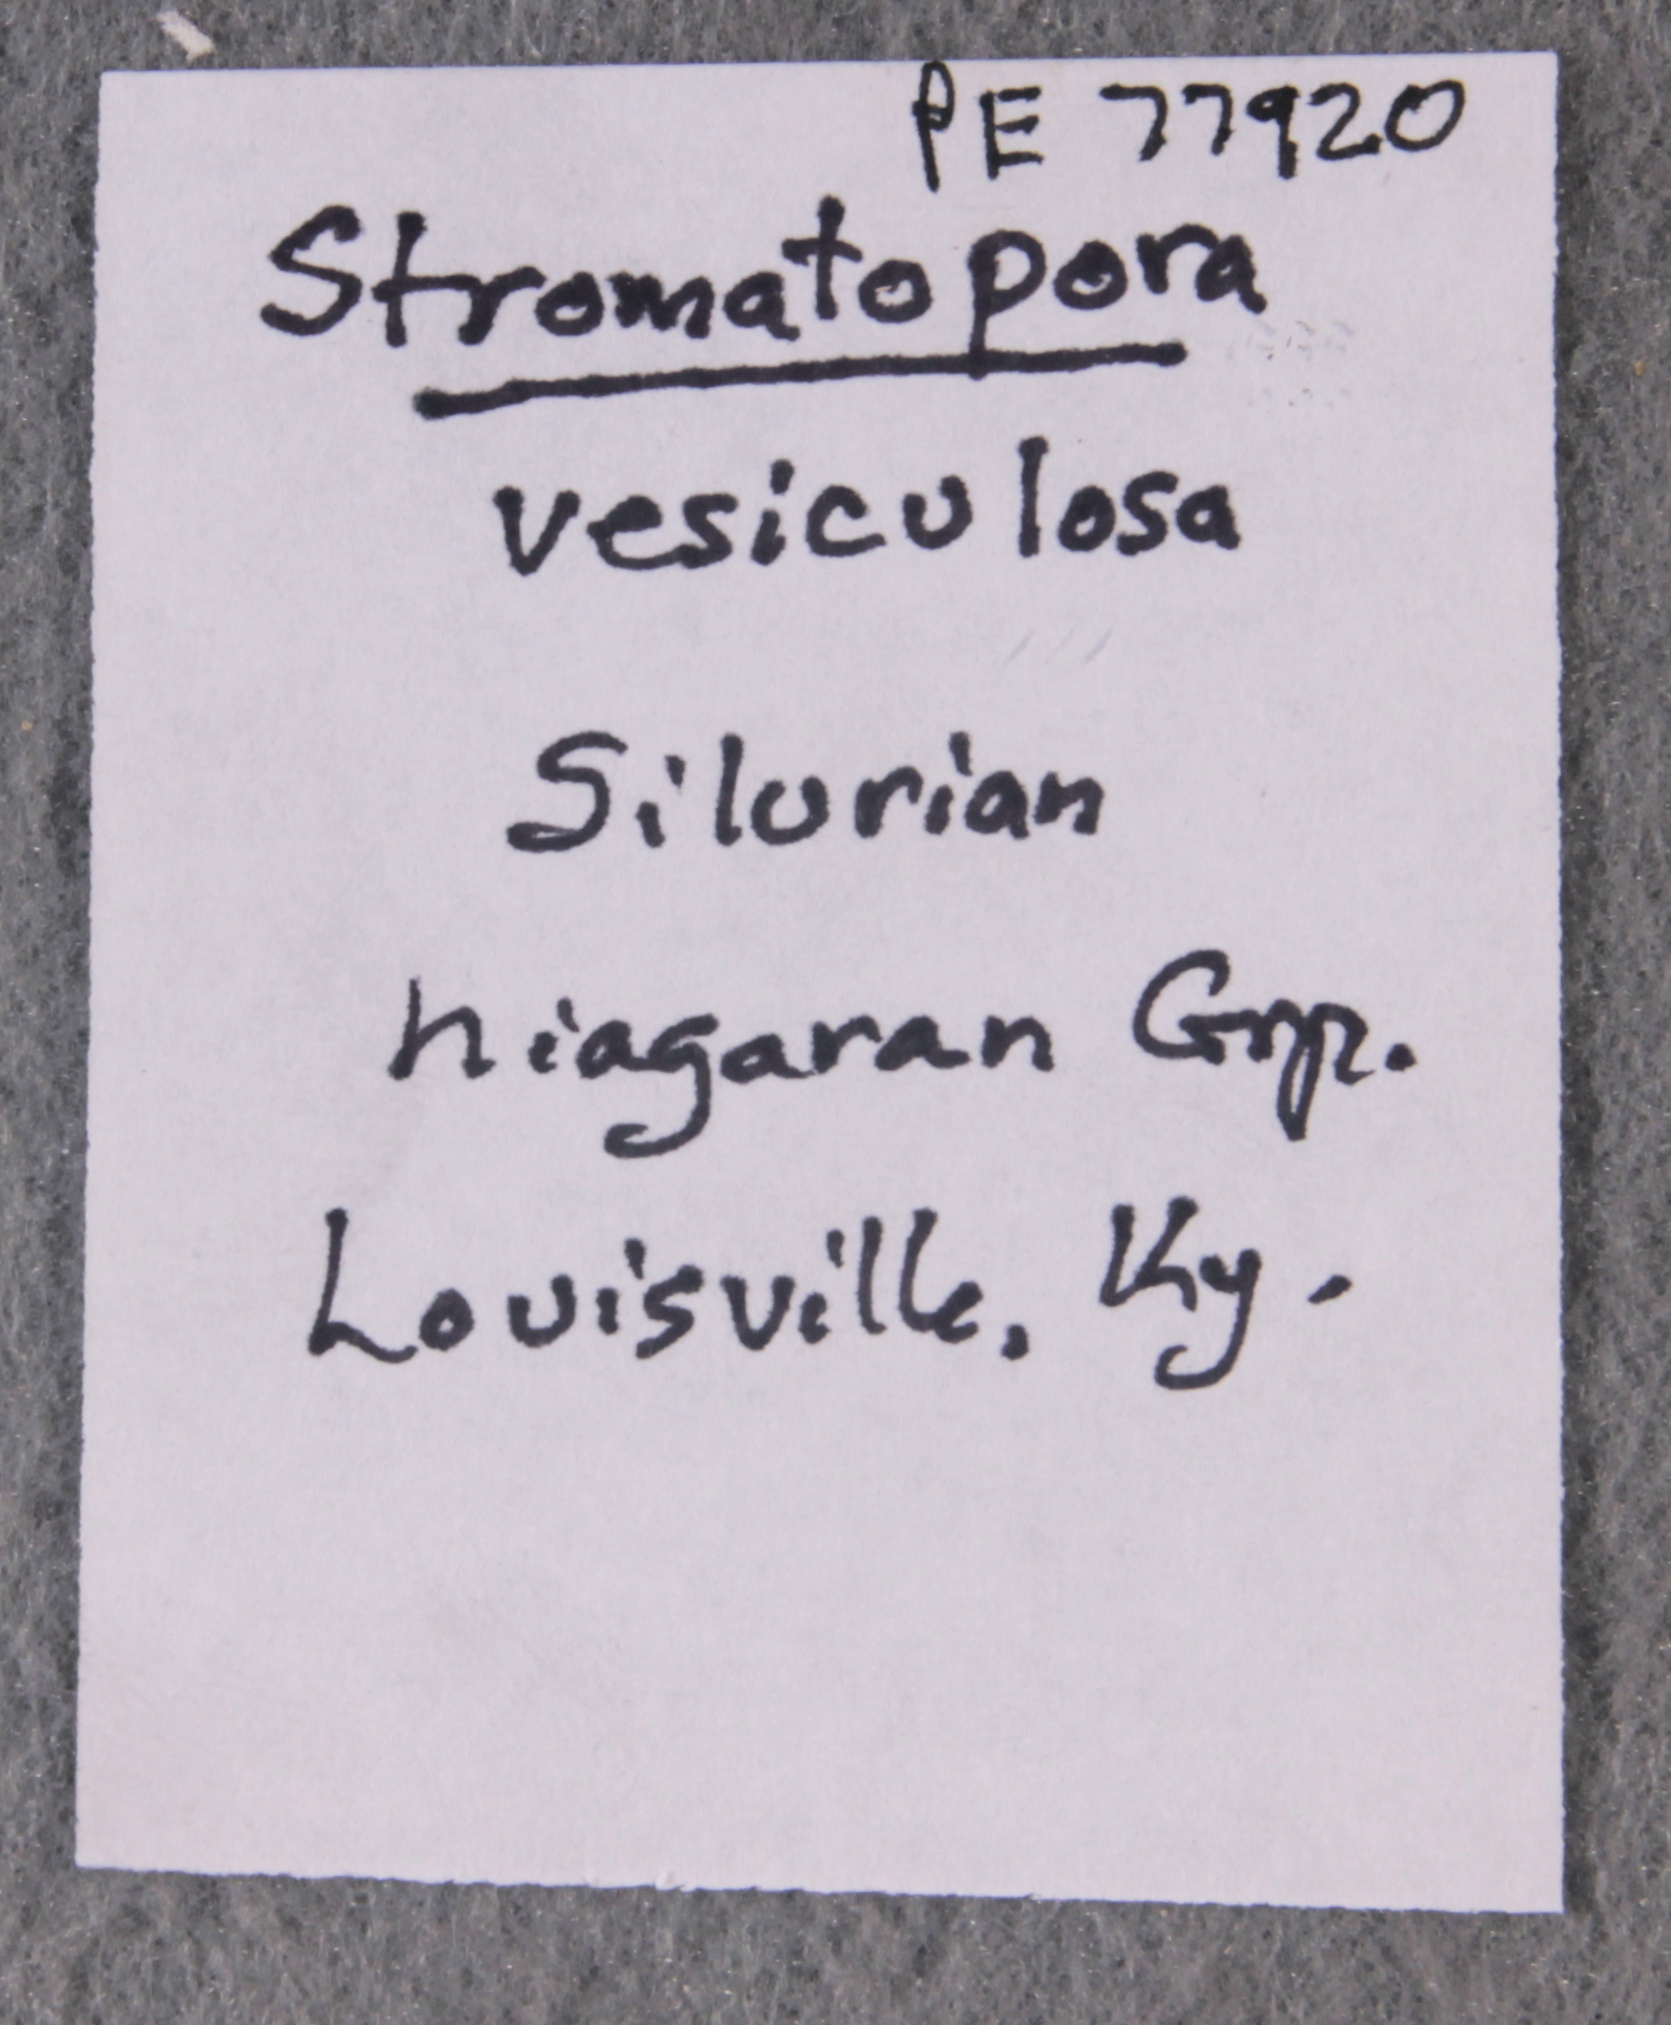 PE 77920
Stromatopora
vesiculosa
Silurian
Niagaran Grp.
Louisville, Ky.